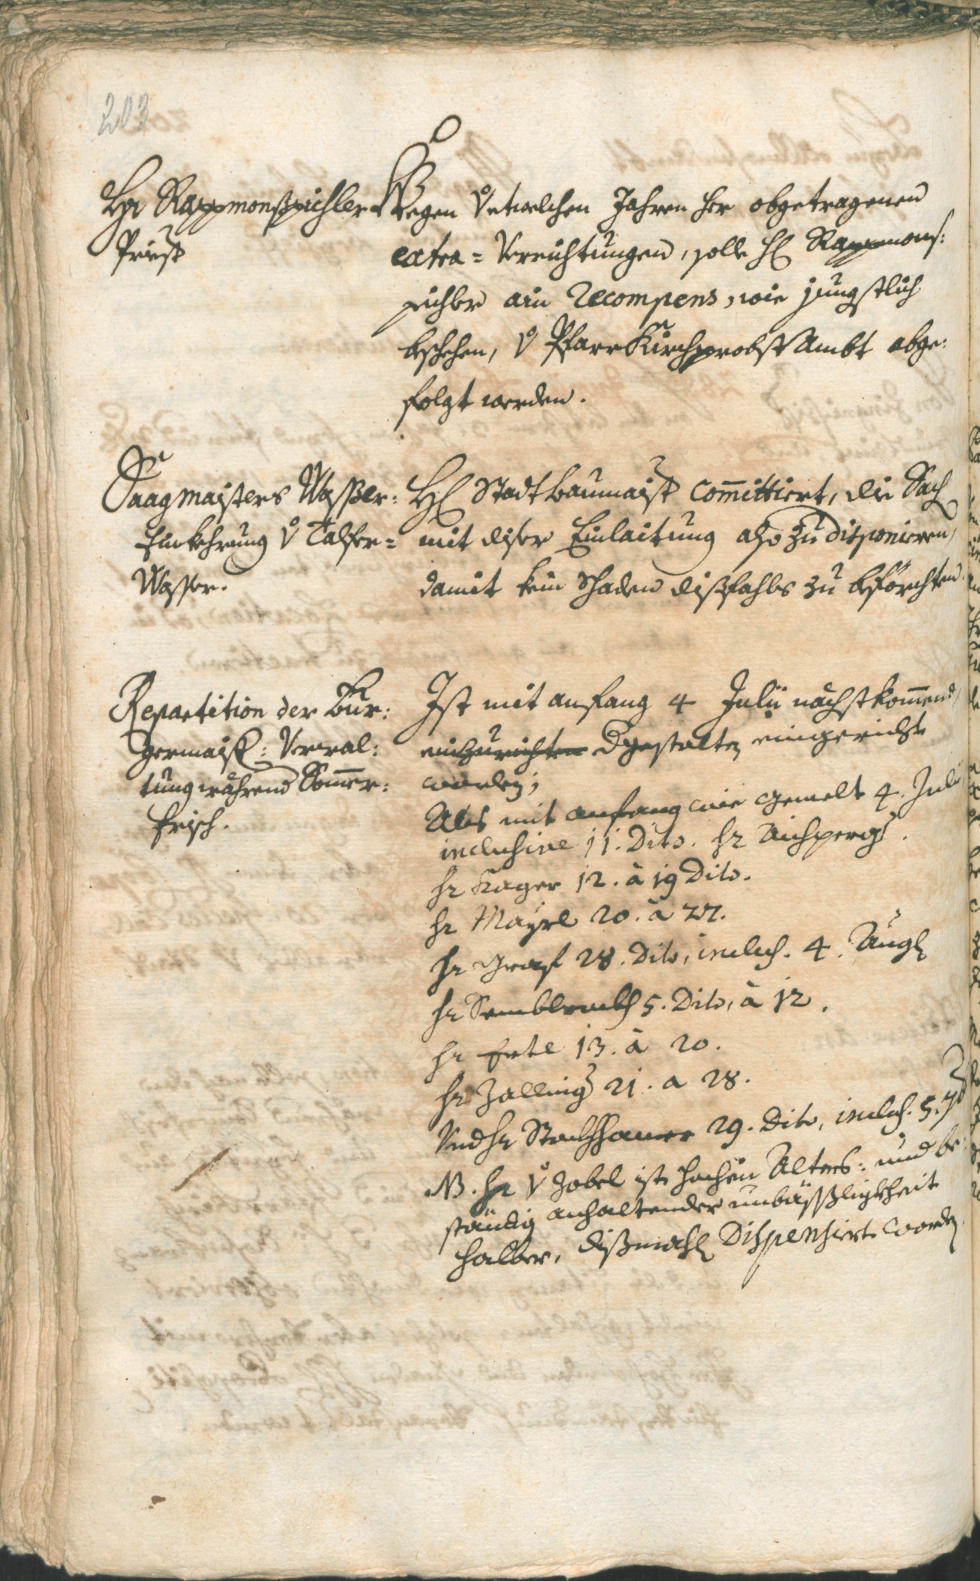 203
Hr Rappmonspichler
Priest
Wegen v etwelchen Jahren her obgetragenen
extra= Verrichtungen, solle H Rappmons:
pichler ain Recompens, wie jüngstlich
beschehen, v Pfarrkürchprobst Ambt abge:
folgt werden.
Saagmaisters Wasser:
Einkehrung v Talfer=
Wasser.
H Stadt baumaist committiert, die Sach
mit diser Einlaitung also zu disponieren,
damit kein Schaden dißfahls zu beförchten
Repartition der Bur:
germaist: Verwal:
tung während Som̄er:
frisch.
Ist mit anfang 4 Julii nächstkom̄end,
einzurichten dgestalten eingericht
worden;
Als mit anfang wie gemelt 4. Julii
inclusive 11. Dito. hr Aichperg.
hr Kager 12. à 19 Dito.
hr Mayrl 20. à 27.
hr Graf 28. Dito, inclus. 4. Aug
hr Semblrockh 5. Dito, à 12.
hr Ertl 13. à 20.
hr Zalling 21. a 28.
Und hr Stockhamer 29. Dito, inclus. 5. 7b
NB. hr v Zobel ist hochen Alters: und be
ständig anhaltender unbäßligkheit
halber, dißmahl Dispensiert worden